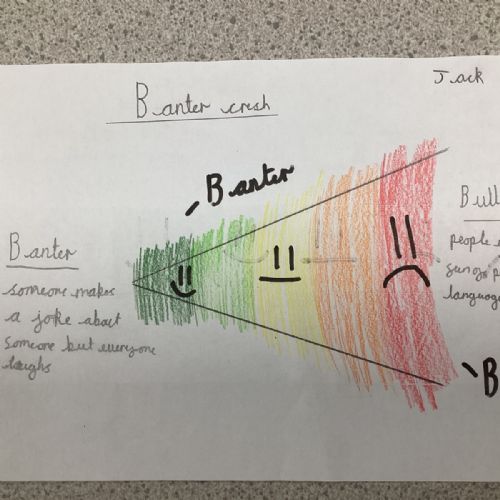 Jack
Banter crush
Banter
Banter
someone makes
a joke about
someone but everyone
laughs
Bull
people
language
B